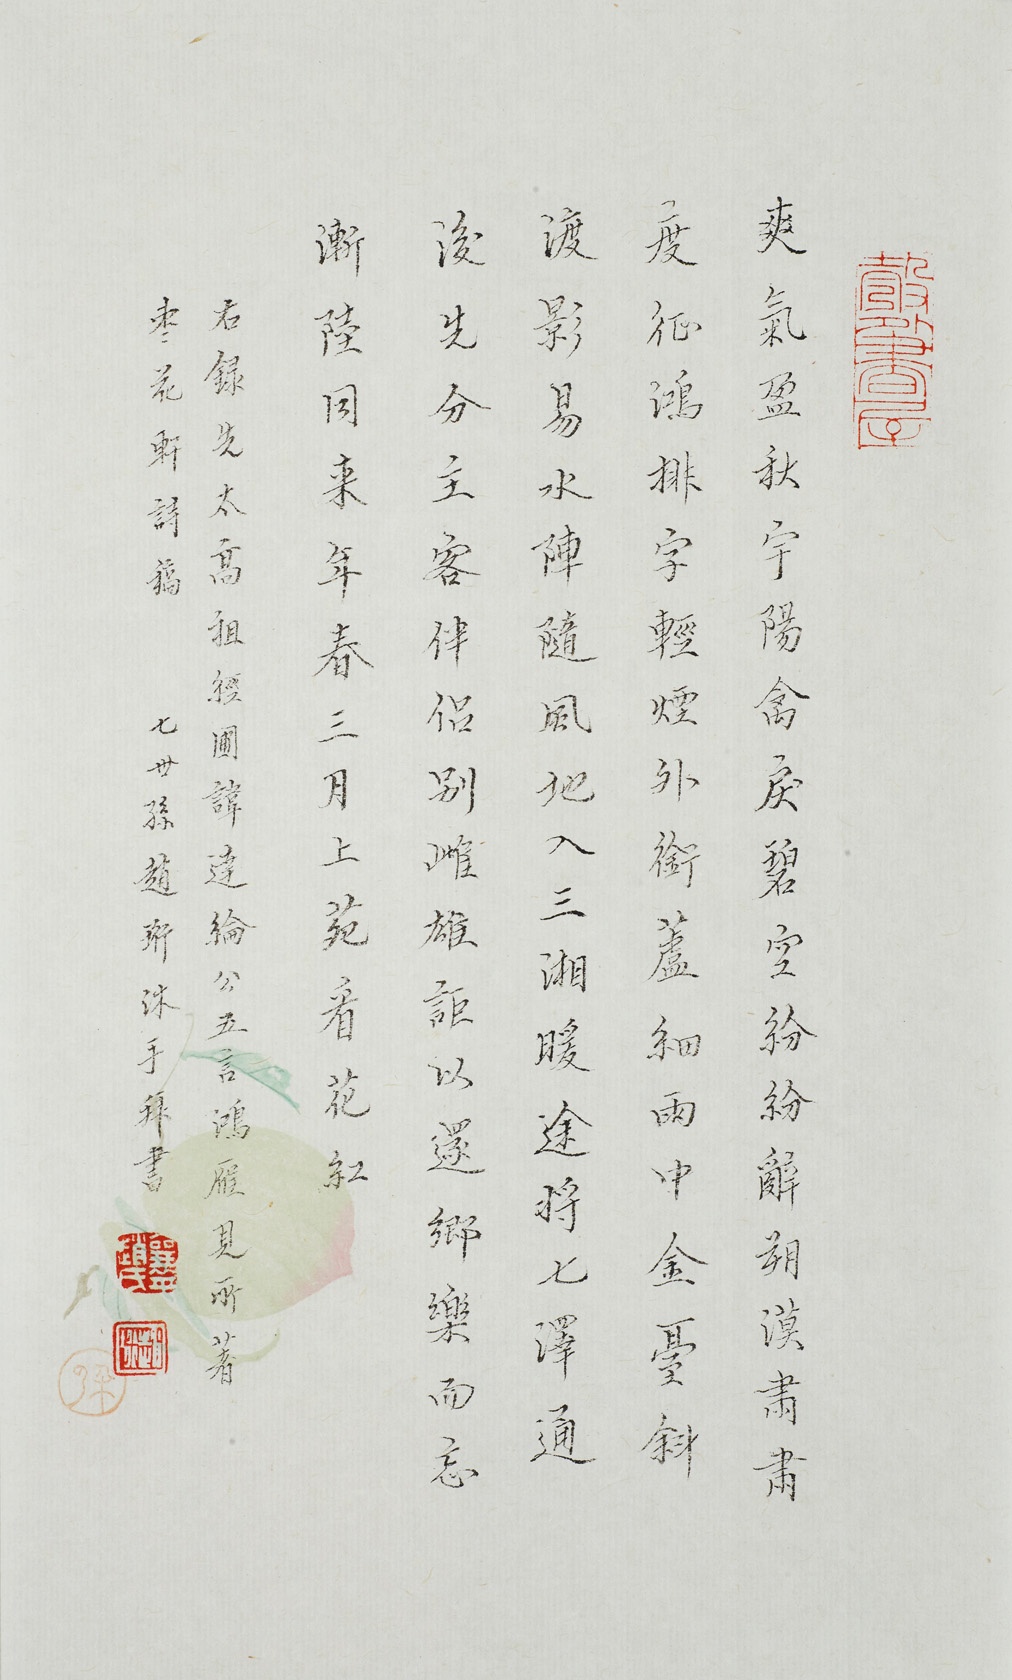 爽氣盈秋宇陽禽戾碧空紛紛辭朔漠肅肅
度征鴻排字輕煙外銜蘆細雨中金臺斜
渡影易水陣隨風地入三湘暖途將七澤通
後先分主客伴侶別雌雄詎以還鄉樂而忘
漸陸同來年春三月上苑看花紅
右録先太高祖經圃諱達綸公五言鴻雁見所著
枣花軒詩稿 七世孫趙珩沐手拜書